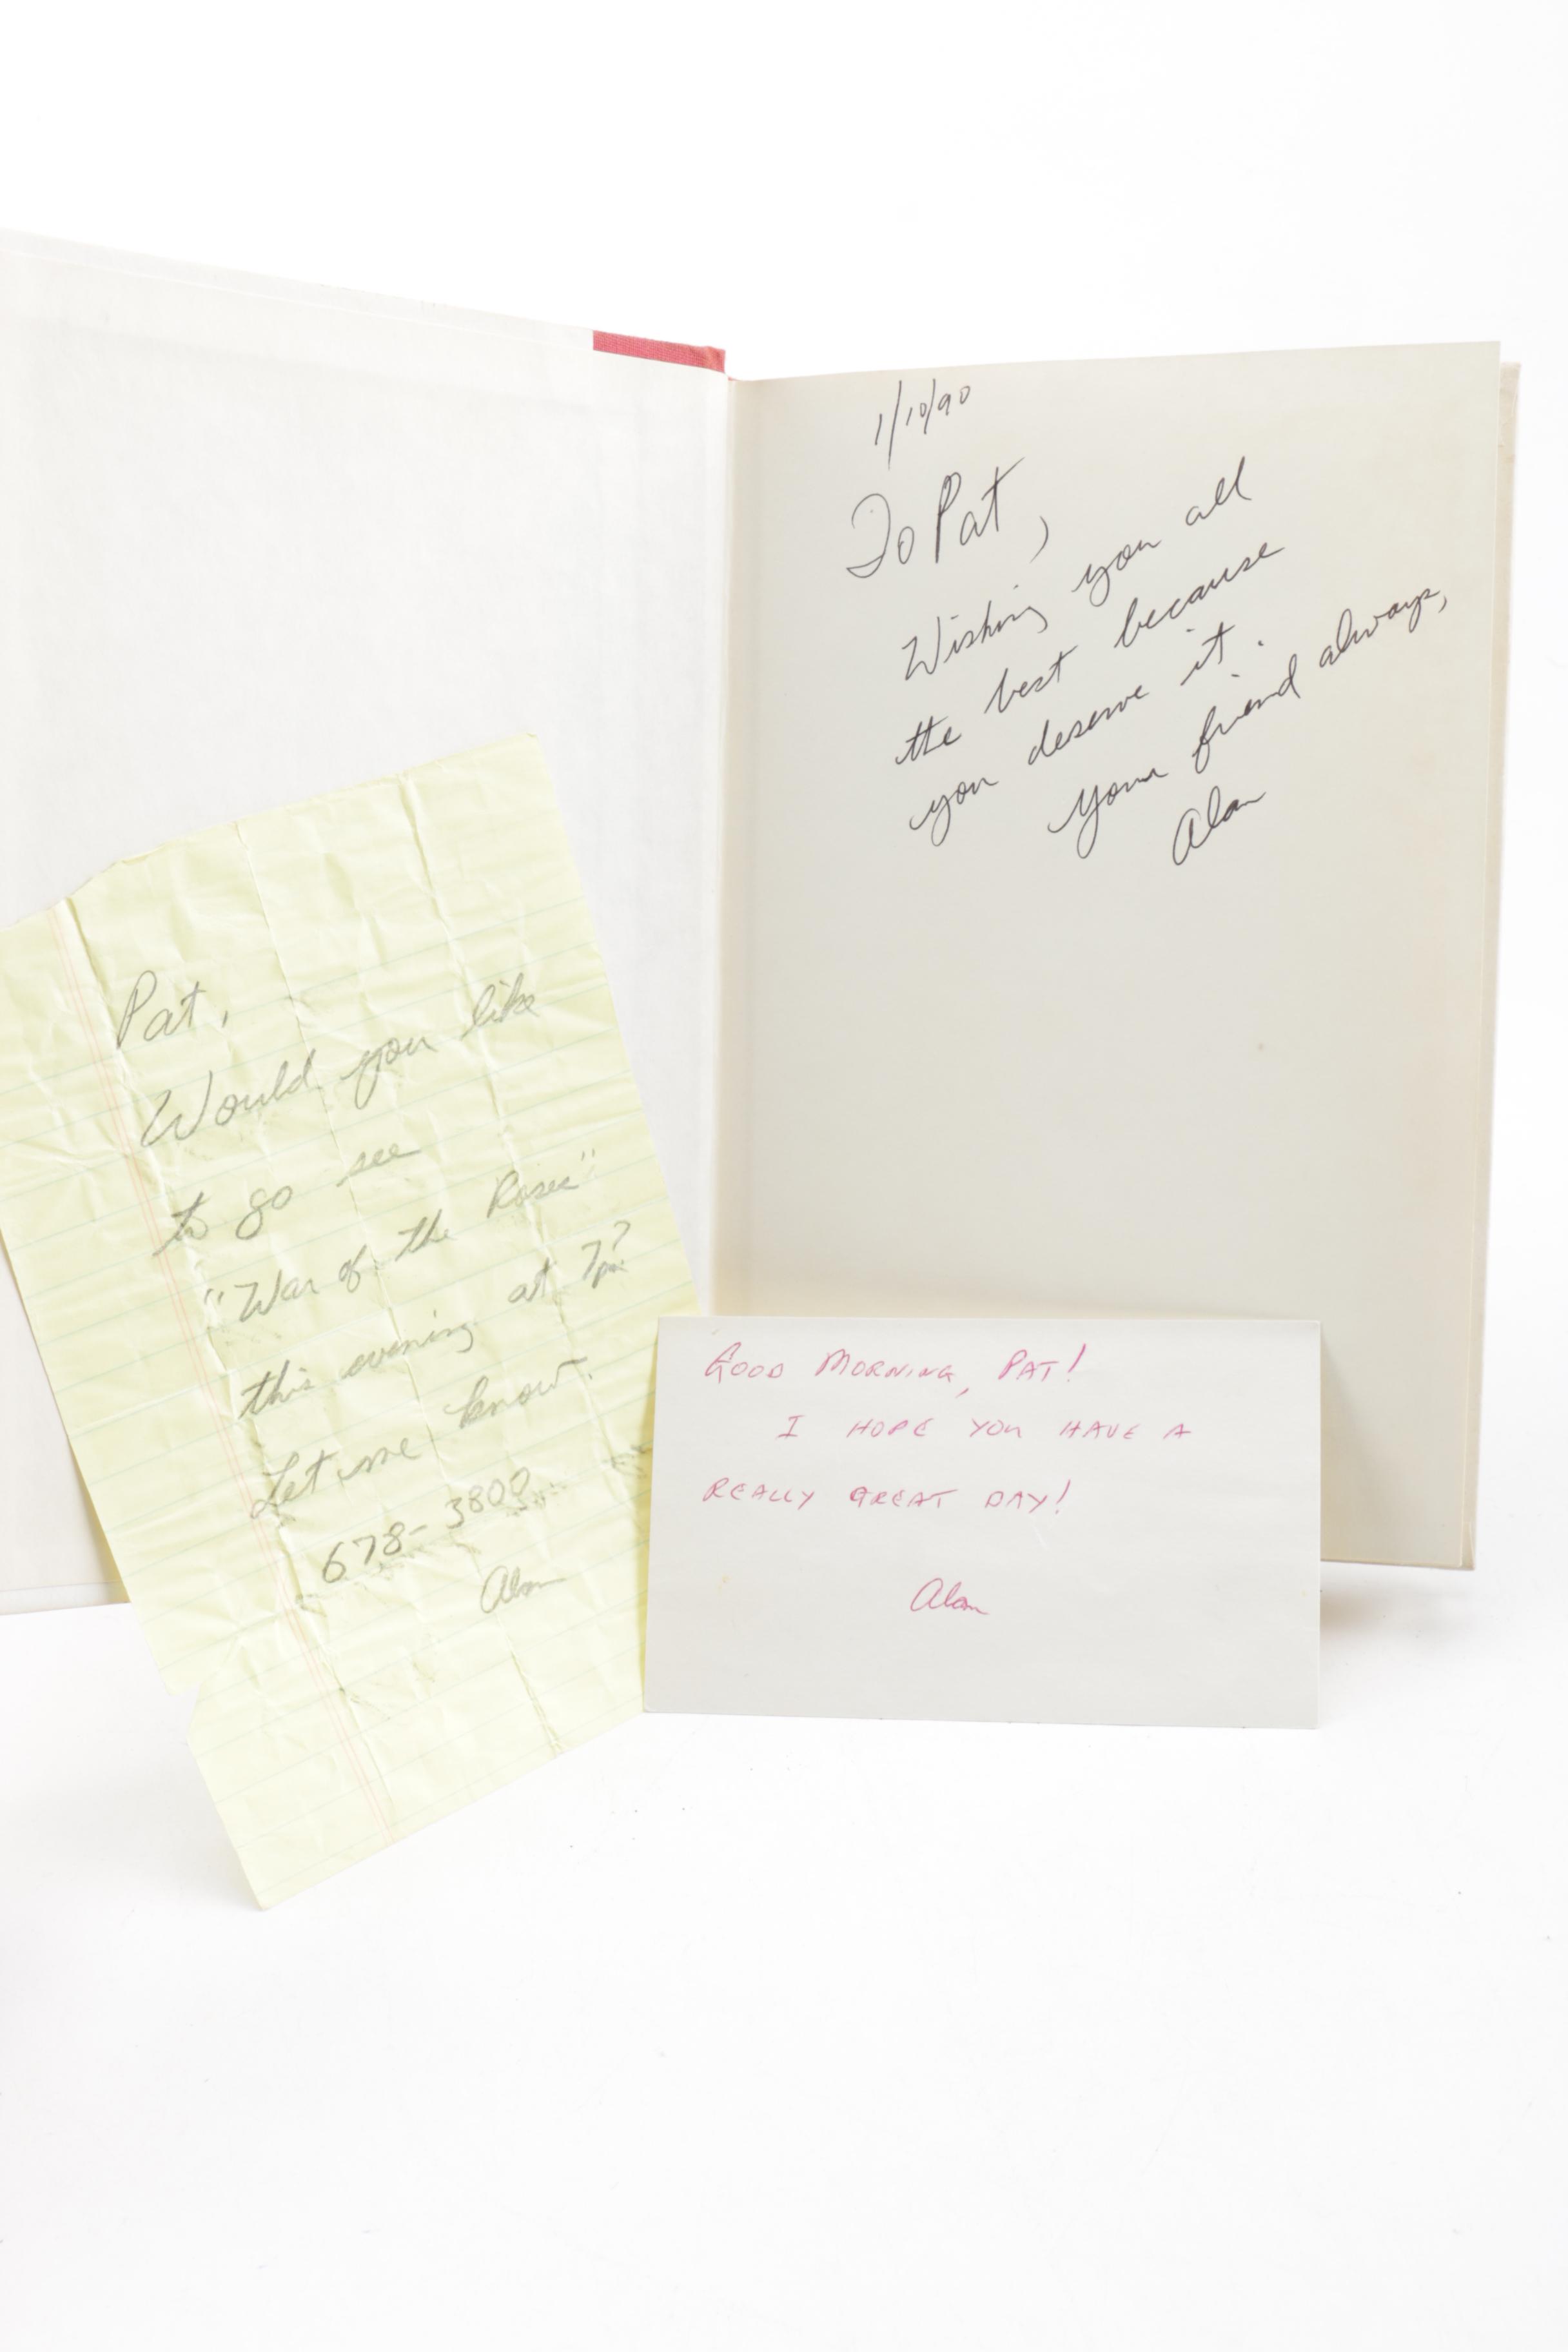 1/10/90
To Pat,
Wishing you all
the best because
you deserve it.
Your friend always,
Alan
Pat,
Would you like
to go see
"War of the Roses"
this evening at 7pm?
Let me know.
678-3800
Alan
GOOD MORNING, PAT!
I HOPE YOU HAVE A
REALLY GREAT DAY!
Alan